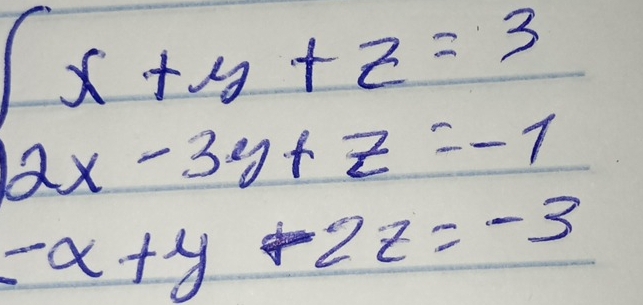 x + y + z = 3
2x - 3y + z = -1
-x + y - 2z = -3